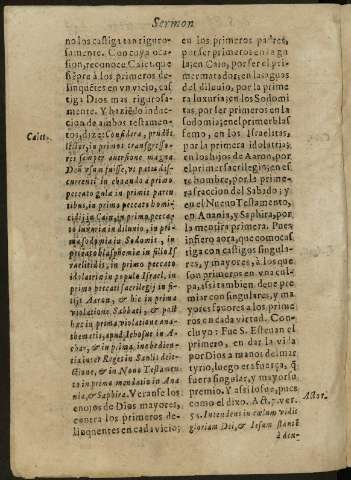 Sermon
no los castiga tan riguro-
samente. Con cuya oca-
sion, reconoce Caiet. que
siẽpre à los primeros de-
linquẽtes en vn vicio, cas-
tiga Dios mas rigurosa-
mente. Y haziẽdo induc-
cion de ambos testamen-
tos, dize: Considera, prudẽs
lector, in primos transgresso-
res semper auersione magna
Deũ vsum fuisse, vt patet dis-
currenti in
peccato gula in primis paren
tibus, in primo peccato homi-
cidij in Cain, in primo peccato
luxuria in diluuio, in pri-
mo sodomia in Sodomit., in
primo blasphemia in filio Is
raelitidis, in primo peccato
idolatria in populo Israel, in
primo peccati sacrilegij in fi-
lijs Aaron, & hic in prima
violatione Sabbati, & post
hac in prima violatione ana-
thematis, apud Iehosue in A-
char, & in prima inobedien-
tia inter Reges in Saulis deie-
ctione, & in Nouo Testamen-
to in primo mendatio in Ana
nia, & Saphira. Veranse los
enojos de Dios mayores,
contra los primeros de-
linquentes en cada vicio;
Caiet.
en los primeros padres,
por ser primeros en la gu
la; en Cain, por ser el pri-
mer matador; en las aguas
del diluuio, por la prime
ra luxuria; en los Sodomi
tas, por ser primeros en la
sodomia; en el primer blas
femo, en los Israelitas,
por la primera idolatria;
en los hijos de Aaron, por
el primer sacrilegio; en es
te hombre, por la prime-
ra fraccion del Sabado; y
en el Nueuo Testamento,
en Anania, y Saphira, por
la mentira primera. Pues
infiero aora, que como cas
tiga con castigos singula-
res, y mayores, à los que
son primeros en vna cul-
pa, assi tambien deue pre
miar con singulares, y ma
yores fauores a los prime
ros en cada virtud. Con-
cluyo: Fue S. Esteuan el
primero, en dar la vida
por Dios a manos del mar
tyrio, luego era fuerça, q̃
fuera singular, y mayor su
premio. Y assi lo fue, pues
como el dixo. Act. 7. ver.
55. Intendens in cœlum vidit
gloriam Dei, & Iesum stantẽ
Actor.
à dex-